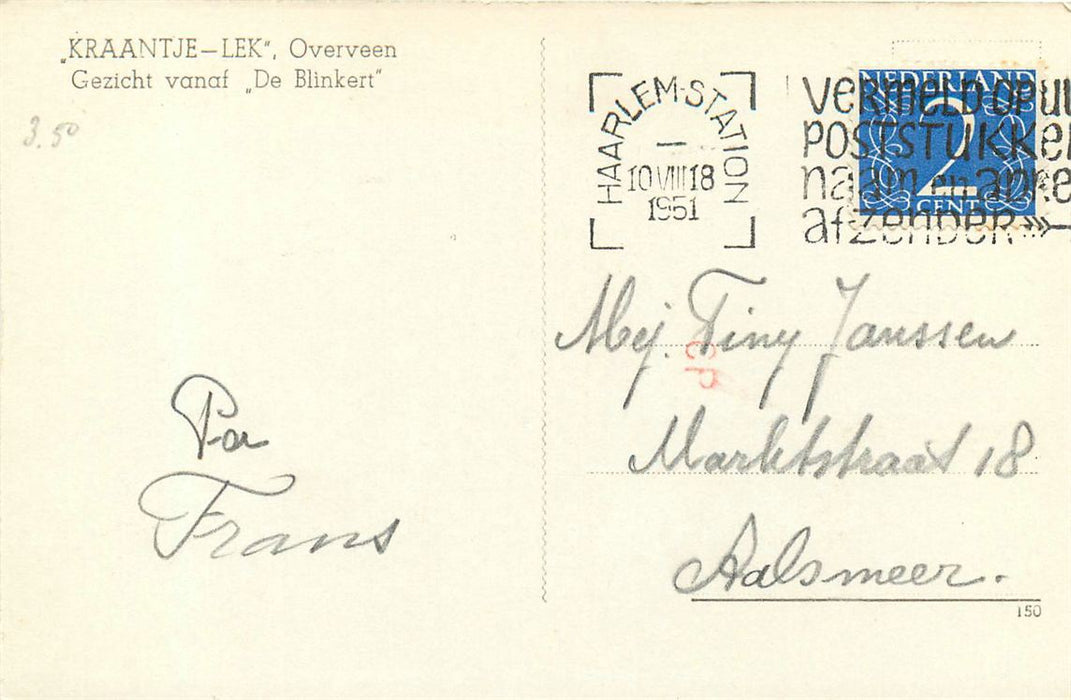 „KRAANTJE–LEK", Overveen
Gezicht vanaf „De Blinkert"
3.50
HAARLEM-STATION
10 VIII 18
1951
VERMELD OP UW
POSTSTUKKEN
naam en adres
afzender
NEDERLAND
2
CENT
Mej. Tiny Janssen
CP
Marktstraat 18
Aalsmeer.
150
Pa
Frans